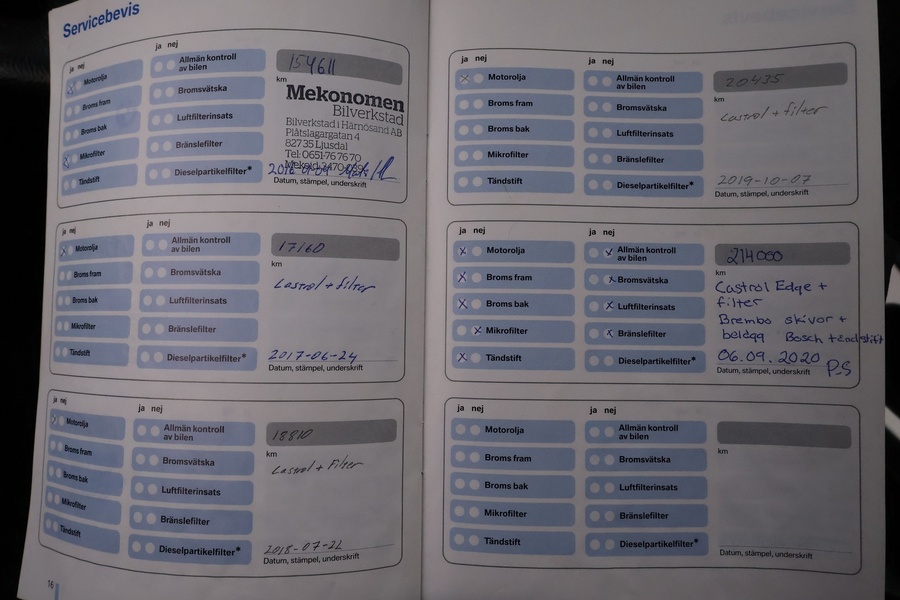 Servicebevis
ja nej
ja nej
Motorolja
Broms fram
Broms bak
Mikrofilter
Tändstift
Allmän kontroll
av bilen
Bromsvätska
Luftfilterinsats
Bränslefilter
Dieselpartikelfilter*
154611
km
Mekonomen
Bilverkstad
Bilverkstad i Härnösand AB
Plåtslagargatan 4
827 35 Ljusdal
Tel: 0651-76 76 70
Datum, stämpel, underskrift
ja nej
ja nej
Motorolja
Broms fram
Broms bak
Mikrofilter
Tändstift
Allmän kontroll
av bilen
Bromsvätska
Luftfilterinsats
Bränslefilter
Dieselpartikelfilter*
17160
km
Castrol + filter
2017-06-24
Datum, stämpel, underskrift
ja nej
ja nej
Motorolja
Broms fram
Broms bak
Mikrofilter
Tändstift
Allmän kontroll
av bilen
Bromsvätska
Luftfilterinsats
Bränslefilter
Dieselpartikelfilter*
18810
km
Castrol + Filter
2018-07-22
Datum, stämpel, underskrift
16
ja nej
ja nej
Motorolja
Broms fram
Broms bak
Mikrofilter
Tändstift
Allmän kontroll
av bilen
Bromsvätska
Luftfilterinsats
Bränslefilter
Dieselpartikelfilter*
20435
km
Castrol + filter
2019-10-07
Datum, stämpel, underskrift
ja nej
ja nej
Motorolja
Broms fram
Broms bak
Mikrofilter
Tändstift
Allmän kontroll
av bilen
Bromsvätska
Luftfilterinsats
Bränslefilter
Dieselpartikelfilter*
214000
km
Castrol Edge +
filter
Brembo skivor +
belägg Bosch tändstift
06.09.2020
P.S
Datum, stämpel, underskrift
ja nej
ja nej
Motorolja
Broms fram
Broms bak
Mikrofilter
Tändstift
Allmän kontroll
av bilen
Bromsvätska
Luftfilterinsats
Bränslefilter
Dieselpartikelfilter*
km
Datum, stämpel, underskrift